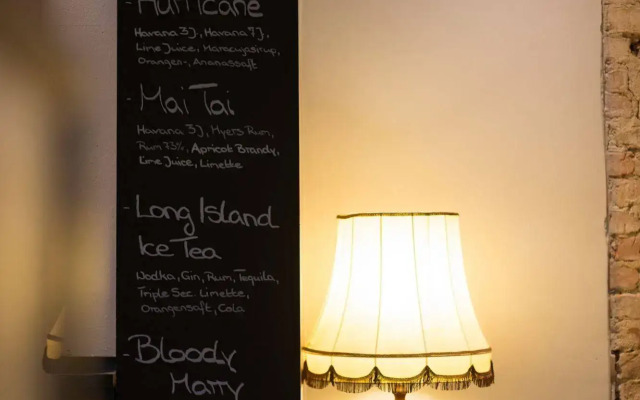 - Hurricane
Havana 3J, Havana 7J,
Lime Juice, Maracujasirup,
Orangen-, Ananassaft
- Mai Tai
Havana 3J, Myers Rum,
Rum 73%, Apricot Brandy,
Lime Juice, Limette
- Long Island
Ice Tea
Wodka, Gin, Rum, Tequila,
Triple Sec, Limette,
Orangensaft, Cola
- Bloody
Marry